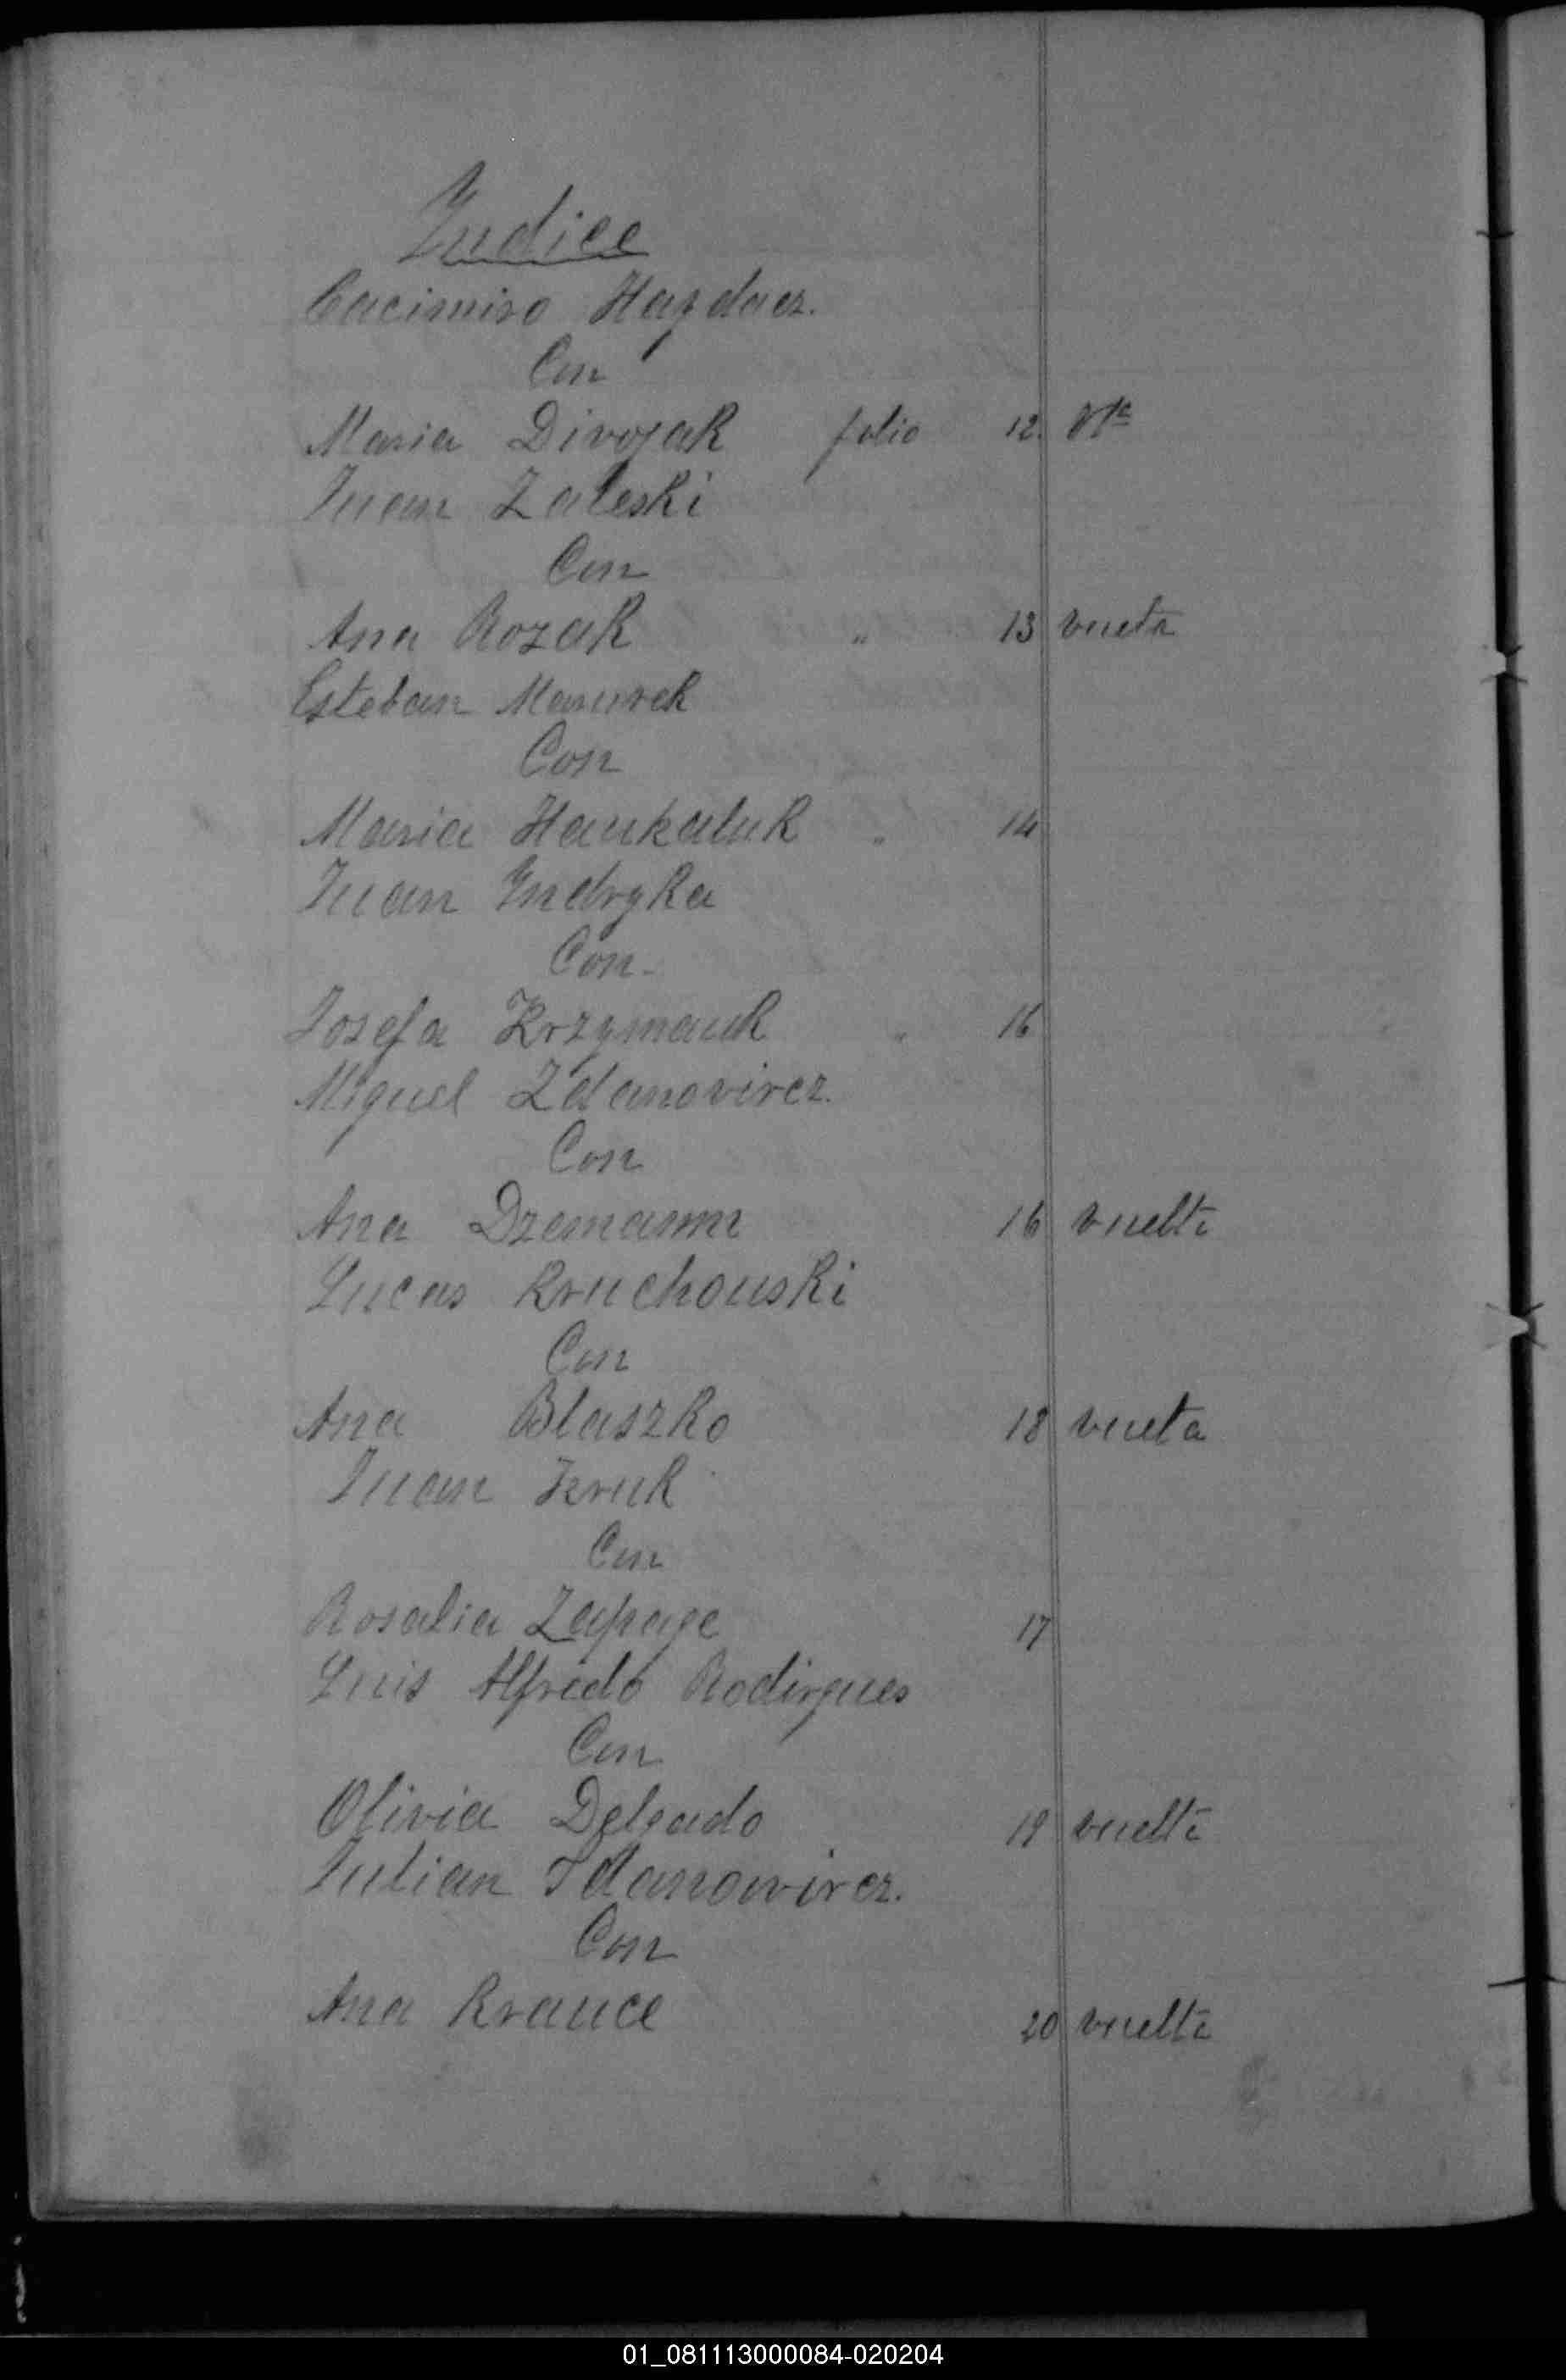 Indice
Cacimiro Hazdacz.
Con
Maria Divojak folio 12. Vta
Juan Zaleski
Con
Ana Rozak " 13 vueta
Esteban Mazurek
Con
Maria Haukaluk " 14
Juan Yndryka
Con
Josefa Krzymauk " 16
Miguel Zdanovircz.
Con
Ana Dzemann 16 vuelta
Lucas Kruchouski
Con
Ana Blaszko 18 vueta
Juan Kruk
Con
Rosalia 17
Luis Alfredo Rodirgues
Con
Olivia Delgado 19 vuelta
Julian Zdanowircz.
Con
Ana Krauce 20 vuelta
01_081113000084-020204